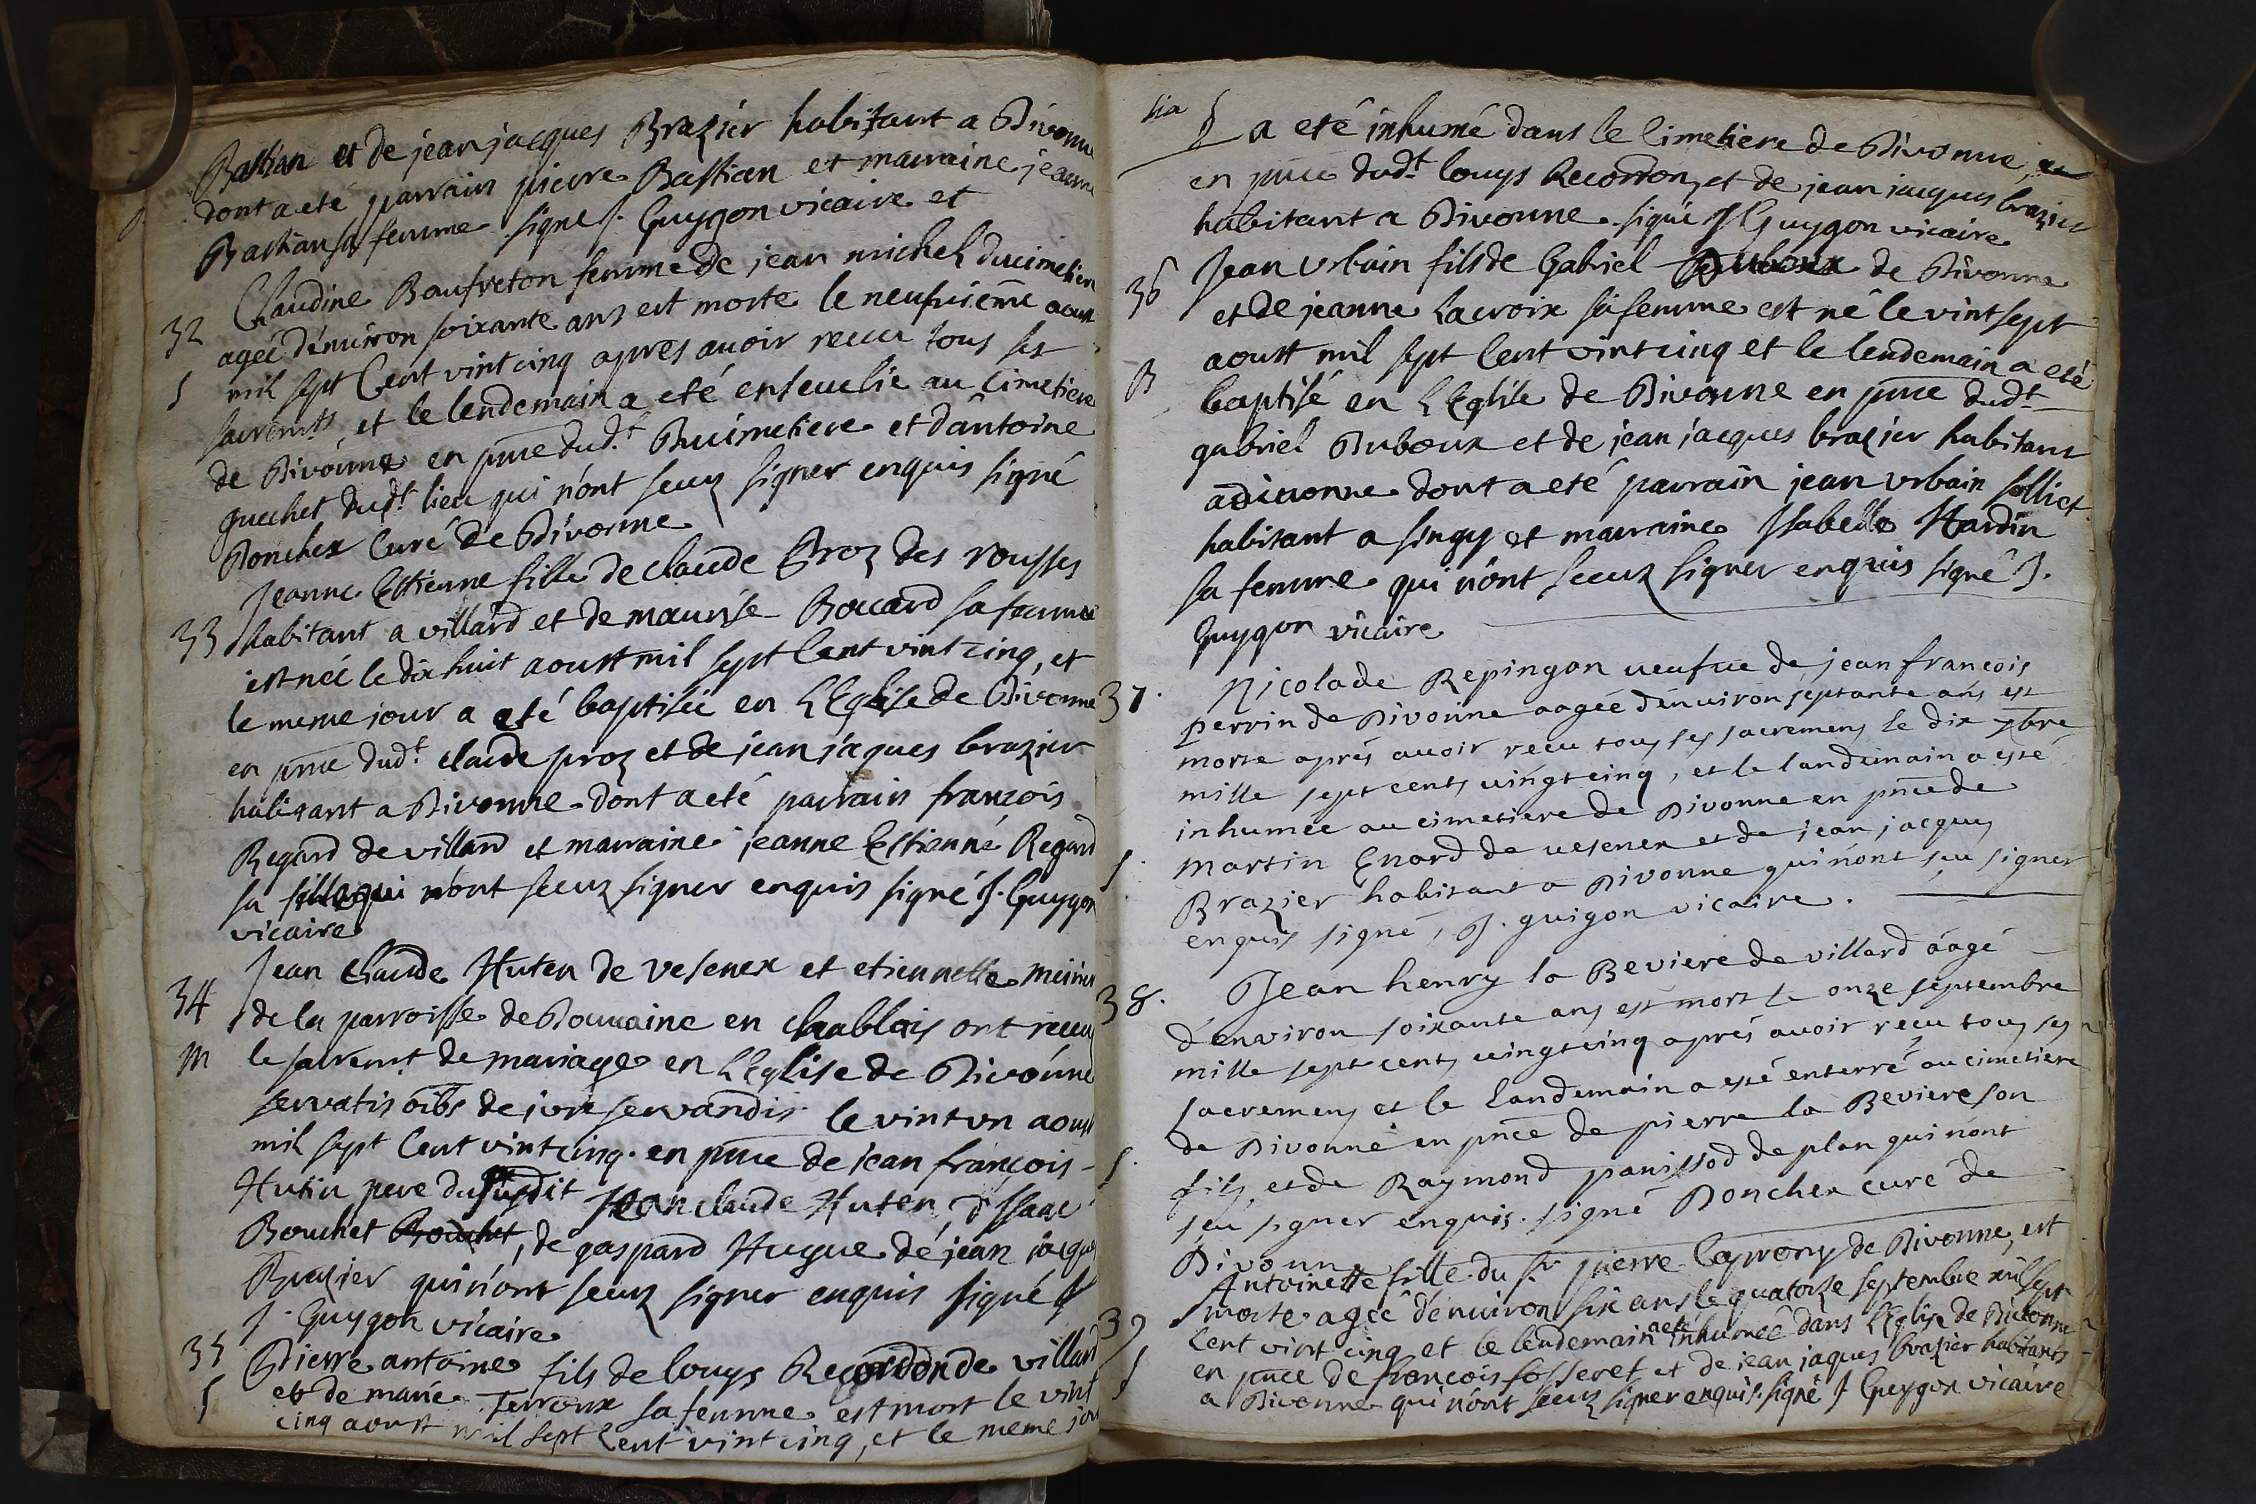 Bastian et de jean jacques Brazier habitant a Divonne
dont a eté parrain pierre Bastian et marraine jeanne
Bastian sa femme signe J. Guygon vicaire et
Claudine Boufreton femme de jean michel Ducimetiere
32 agée d'enuiron soixante ans est morte le neufuiéme aoust
S mil sept Cent vint cinq apres auoir receu tous ses
sacremts, et le lendemain a eté enseuelie au cimetiere
de Divonne en pnce dudt. Ducimetiere et d'antoine
guechet dudt. lieu qui n'ont seuz signer enquis signé
Donchex Curé de Divonne
Jeanne Estienne fille de claude Proz des rousses
33 habitant a villard et de maurise Bouard sa femme
est née le dix huit aoust mil sept Cent vint cinq, et
le meme jour a eté baptisée en L'Eglise de Divonne
en pnce dudt. claude proz et de jean jaques brazier
habitant a Divonne dont a eté parrain françois
Regard de villard et marraine jeanne Estienne Regard
sa fille qui n'ont seuz signer enquis signé J. Guygon
vicaire
Jean Claude Huten de Vesenex et etiennette
34 de la parroisse de Douuaine en chablais ont receu
m le sacremt. de mariage en L'Eglise de Divonne
servatis oïbs de jure servandis le vint vn aoust
mil sept Cent vint cinq. en pnce de jean françois
Hutin pere du susdit Jean claude Huten, d'Isaac
Bouchet Bouchet, de gaspard Hugue de jean jacques
Brazier qui n'ont seuz signer enquis signé J
J. Guygon vicaire
35 Pierre antoine fils de louys Recordon de villard
S et de marie Terroux sa femme est mort le vint
cinq aoust mil sept Cent vint cinq, et le meme jour
S a eté inhumé dans le cimetiere de Divonne,
en pnce dudt. louys Recordon, et de jean jacques brazier
habitant a Divonne. signé J Guygon vicaire
36 Jean Vrbain fils de Gabriel Duboux de Divonne
et de jeanne Lacroix sa femme est né le vint sept
aoust mil sept Cent vint cinq et le lendemain a eté
B baptisé en L'Eglise de Divonne en pnce dudt.
gabriel Duboeux et de jean jacques brazier habitant
a divonne dont a eté parrain jean vrbain solliet
habitant a singy et marraine Isabelle Hardin
sa femme qui n'ont sceuz signer enquis signé J.
Guygon vicaire
37. Nicolade Repingon ueufue de jean francois
perrin de Divonne aagée d'enuiron septante ans est
morte aprés auoir reçu tous ses sacremens le dix 7bre
mille sept cents uingt cinq, et le landemain a esté
inhumée au cimetiere de Divonne en pnce de
S. martin Enard de uesenex et de jean jacques
Brazier habitant a Divonne qui n'ont seu signer
enquis signé, J. guigon vicaire.
38. Jean henry la Beviere de villard áagé
d'environ soixante ans est mort le onze septembre
mille sept cents uingt cinq aprés auoir reçu tous ses
sacremens et le landemain a esté enterré au cimetiere
de Divonne en pnce de pierre la Beviere son
S. fils, et de Raymond panissod de plan qui n'ont
seu signer enquis. signé Donchex curé de
Divonne
Antoinette fille du sr. pierre de Divonne, est
39 morte agée d'enuiron six ans le quatorze septembre mil sept
Cent vint cinq et le lendemain a eté inhumée dans L'Eglise de Divonne
S en pnce de françois fosseret et de jean jaques brazier habitants
a Divonne qui n'ont sceuz signer enquis. signé J Guygon vicaire